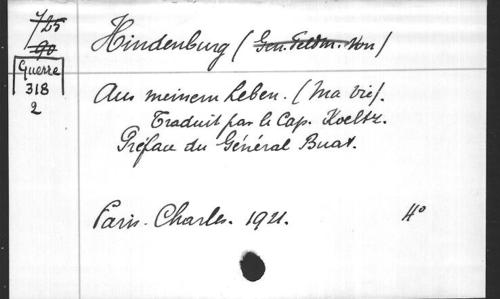 725
90
Guerre
318
2
Hindenburg (Gen. Feldm. Von)
Aus meinem Leben. (Ma vie).
Traduit par le Cap. Koeltz.
Préface du Général Buat.
Paris. Charles. 1921. 4°